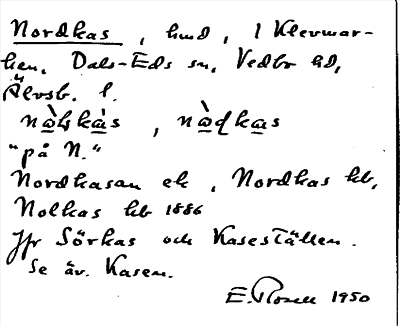 Nordkas, hmd, i Klevmar-
ken, Dals-Eds sn, Vedbo hd,
Älvsb. l.
"på N."
Nordkasan ek, Nordkas kb,
Nolkas kb 1886
Jfr Sörkas och Kaseställen.
Se äv. Kasen.
1950